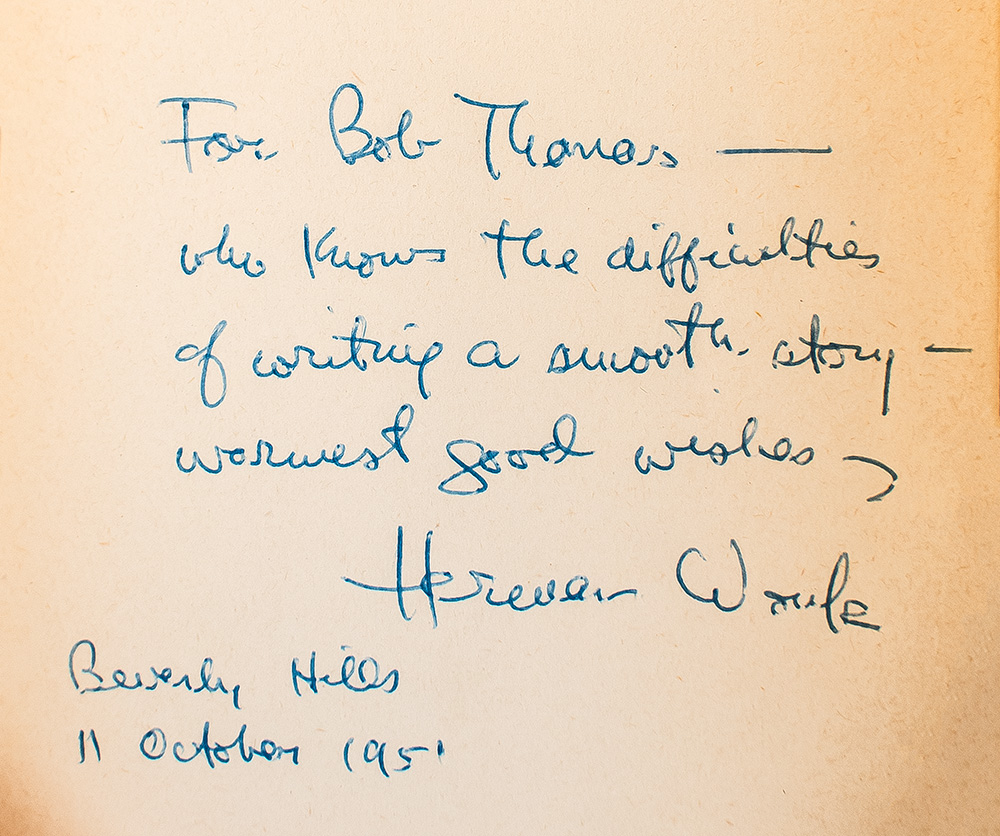 For Bob Thomas —
who knows the difficulties
of writing a smooth story —
warmest good wishes,
Herman Wouk
Beverly Hills
11 October 1951